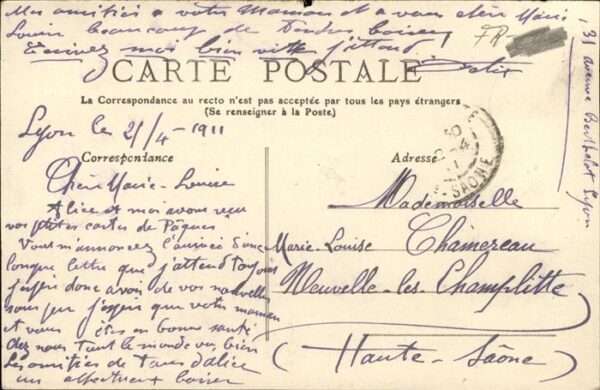 Mes amitiés a votre Maman et a vous chère Marie
Louise beaucoup de tendres baisers
Ecrivez moi bien vite j'attend
FR
31 avenue Berthelot Lyon
CARTE POSTALE
La Correspondance au recto n'est pas acceptée par tous les pays étrangers
(Se renseigner à la Poste)
Lyon le 21/4-1911
Correspondance
Adresse
SAONE
Chère Marie-Louise
Alice et moi avons reçu
vos petites cartes de Pâques
Vous m'annoncez l'arrivée d'une
longue lettre que j'attend toujours
j'espère donc avoir de vos nouvelles
sous peu j'espère que votre maman
et vous êtes en bonne santé
chez nous tout le monde va bien
Les amitiés de Tous d'alice
un affectueux baiser
Mademoiselle
Marie-Louise Chamereau
Neuvelle-les-Champlitte
(Haute-Saône)